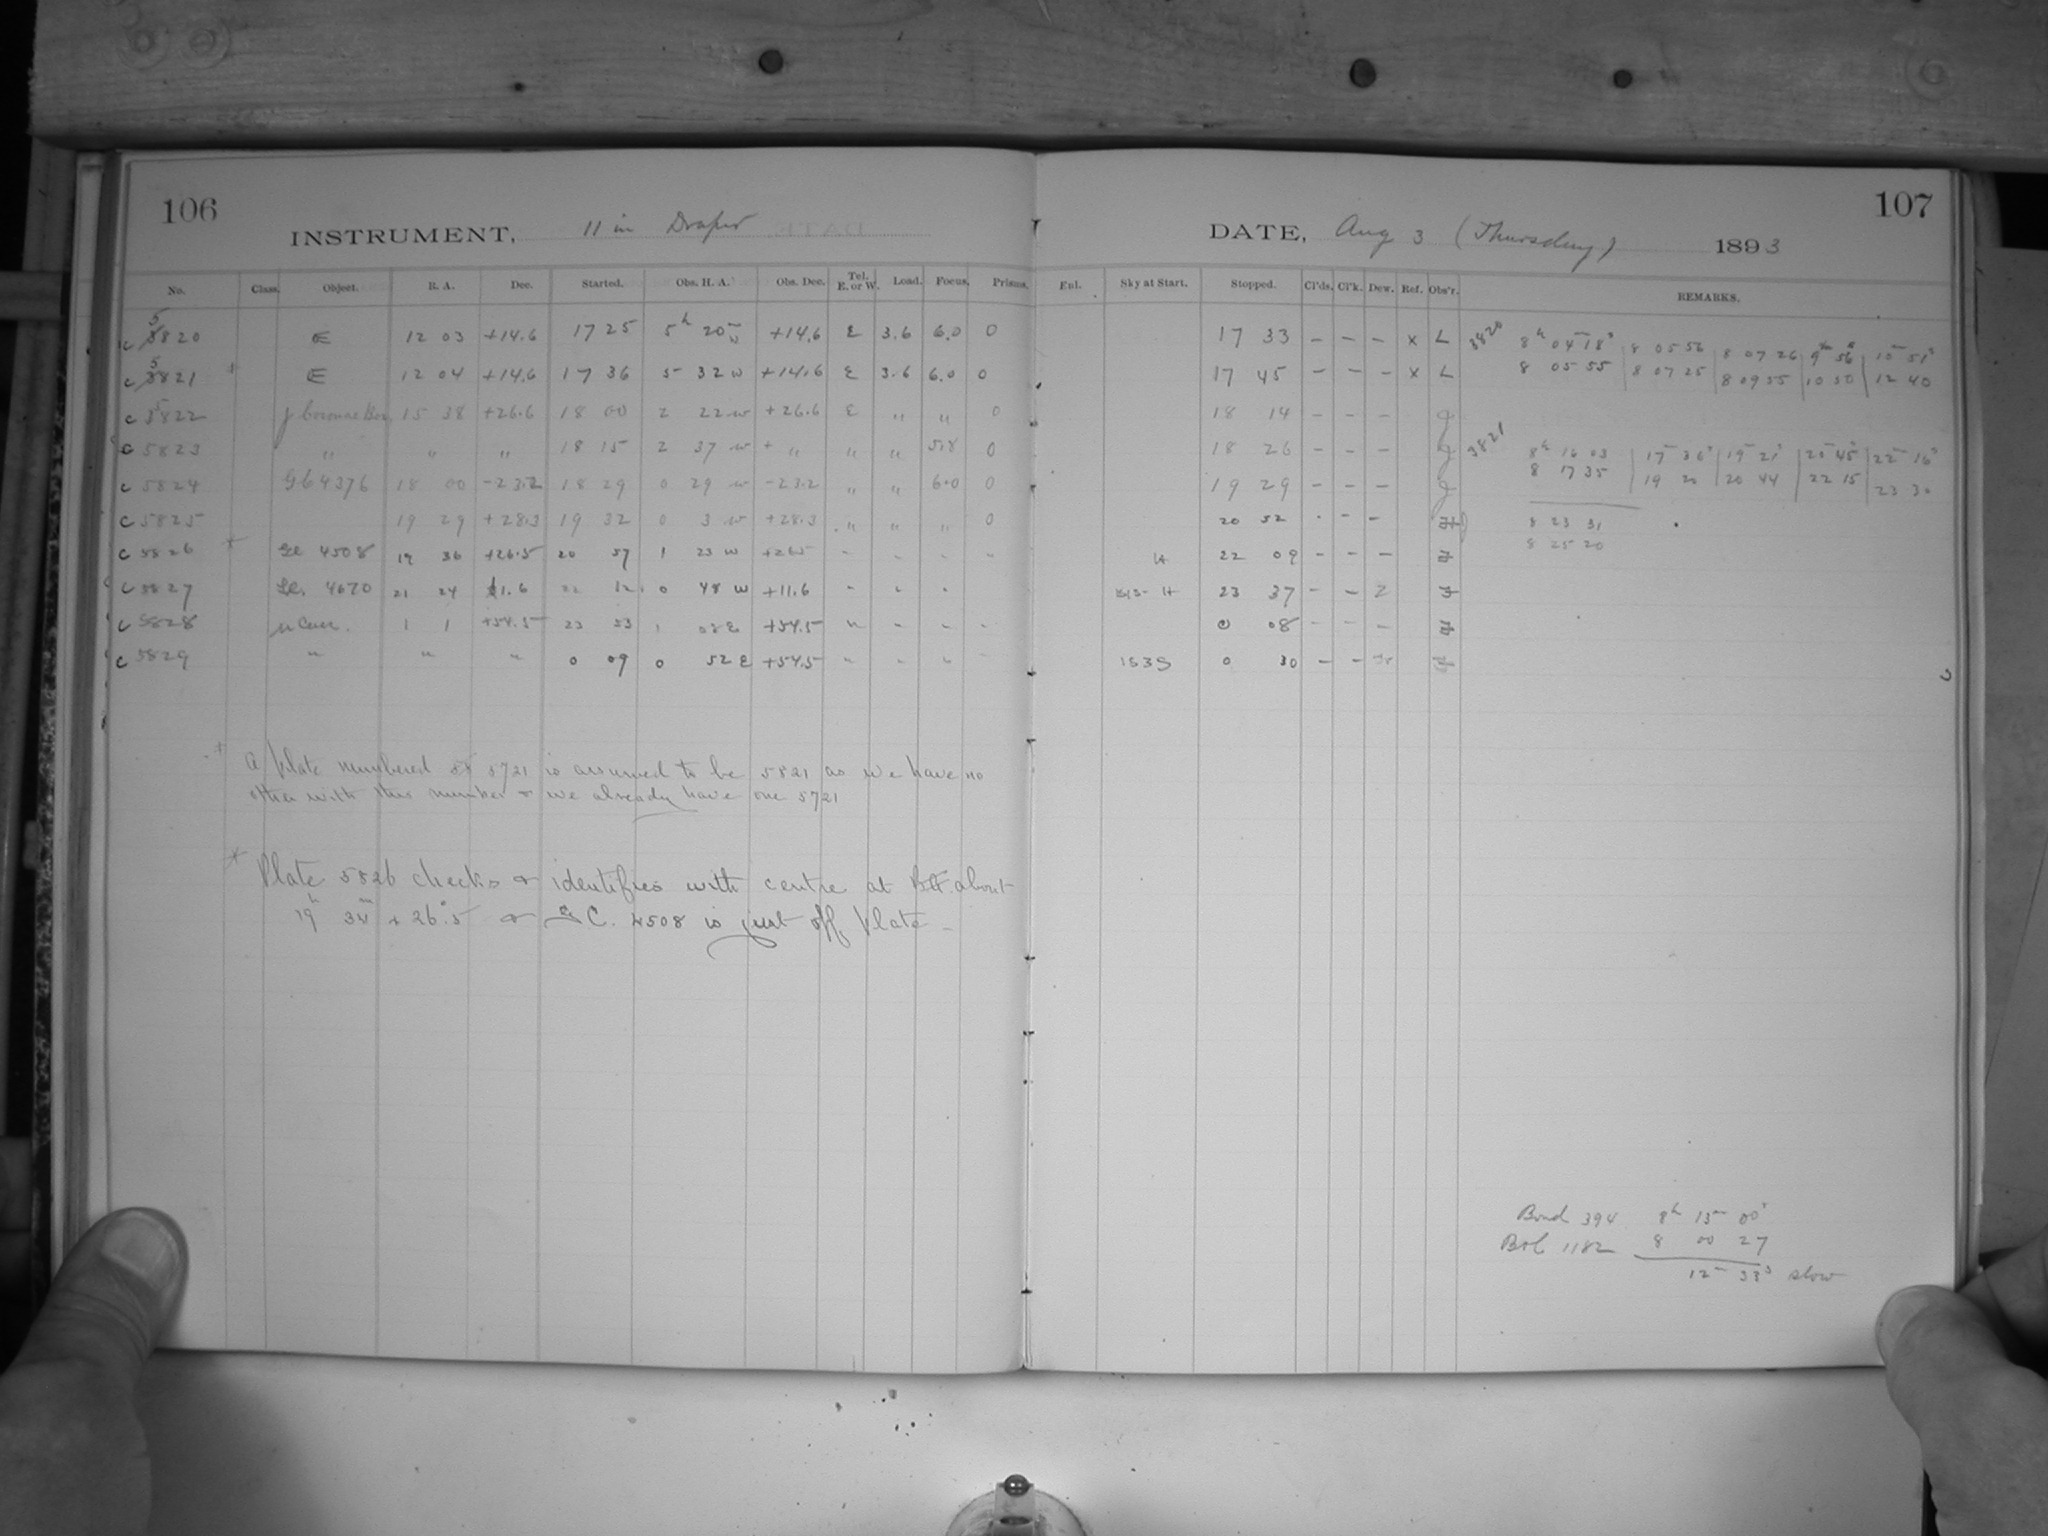 106
INSTRUMENT, 11 in Draper
No. Class. Object. R. A. Dec. Started. Obs. H. A. Obs. Dec. Tel. E. or W. Load. Focus. Prisms.
c 5820 E 12 03 +14.6 17 25 5h 20m W +14.6 E 3.6 6.0 0
c 5821 * E 12 04 +14.6 17 36 5 32 W +14.6 E 3.6 6.0 0
c 5822 γ Coronae Bor 15 38 +26.6 18 00 2 22 W +26.6 E " " 0
c 5823 " " " 18 15 2 37 W + " " " 5.8 0
c 5824 GC 4376 18 00 -23.2 18 29 0 29 W -23.2 " " 6.0 0
c 5825 19 29 +28.3 19 32 0 3 W +28.3 " " " 0
c 5826 * GC 4508 19 36 +26.5 20 57 1 23 W +26.5 " " " "
c 5827 GC. 4670 21 24 11.6 22 12 0 48 W +11.6 " " "
c 5828 1 1 +54.5 23 53 1 08 E +54.5 " " " "
c 5829 " " " 0 09 0 52 E +54.5 " " " "
* A plate numbered 5721 is assumed to be 5821 as we have no
other with this number & we already have one 5721
* Plate 5826 checks & identifies with centre at about
19h 34m + 26°.5 & G. C. 4508 is just off plate -
107
DATE, Aug 3 (Thursday) 1893
Enl. Sky at Start. Stopped. Cl'ds. Cl'k. Dew. Ref. Obs'r. REMARKS.
17 33 - - - x L 3820 8h 04m 18s 8 05 56 8 07 26 9m 56s 10m 51s
17 45 - - - x L 8 05 55 8 07 25 8 09 55 10 50 12 40
18 14 - - -
18 26 - - - 3821 8h 16 03 17m 36s 19m 21s 20m 45s 22m 16s
19 29 - - - 8 17 35 19 20 20 44 22 15 23 30
20 52 - - - 8 23 31
8 25 20
22 09 - - -
23 37 - - 2
0 08 - - -
1535 0 30 - -
Bond 394 8h 13m 00s
Bond 1182 8 00 27
12m 33s slow